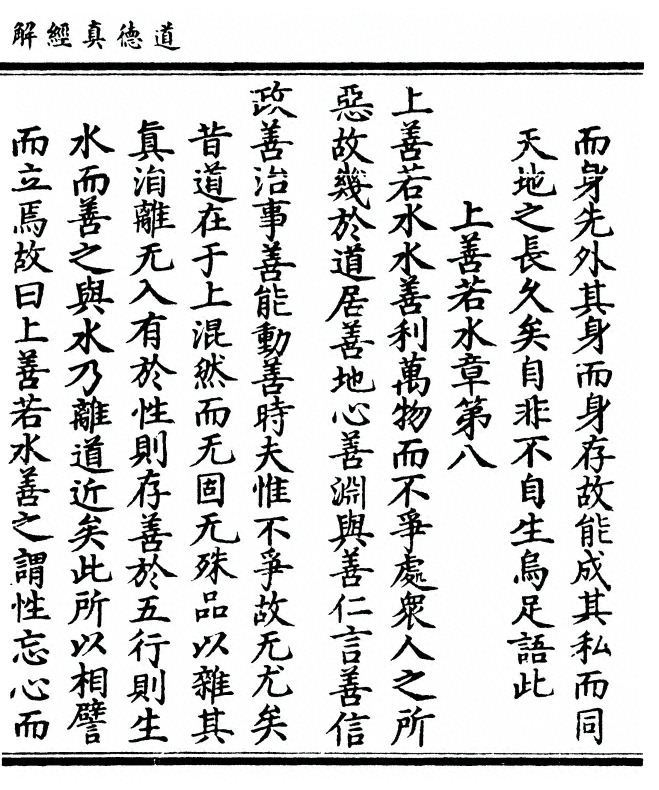 道德真經解
而身先外其身而身存故能成其私而同
天地之長久矣自非不自生烏足語此
上善若水章第八
上善若水水善利萬物而不爭處衆人之所
惡故幾於道居善地心善淵與善仁言善信
政善治事善能動善時夫惟不爭故无尤矣
昔道在于上混然而无固无殊品以雜其
真洎離无入有於性則存善於五行則生
水而善之與水乃離道近矣此所以相譬
而立焉故曰上善若水善之謂性忘心而